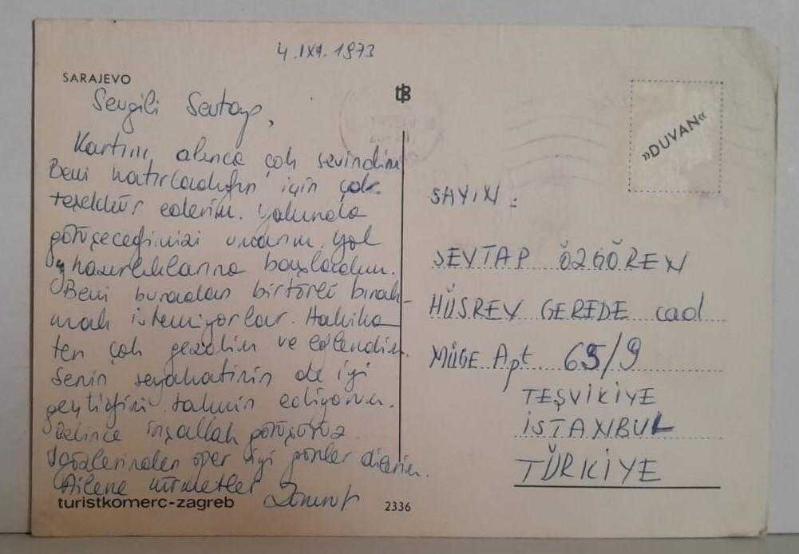 4.IX.1973
SARAJEVO
Sevgili Sevtap,
Kartını alınca çok sevindim
Beni hatırladığın için çok
teşekkür ederim. Yakında
görüşeceğimizi umarım. Yol
hazırlıklarına başladım.
Beni buradan bir türlü bırak-
mak istemiyorlar. Hakika
ten çok gezdim ve eğlendim.
Senin seyahatinin de iyi
geçtiğini tahmin ediyorum.
Gelince inşallah görüşürüz
Gözlerinden öper iyi günler dilerim.
Ailene hürmetler
turistkomerc-zagreb
2336
»DUVAN«
SAYIN:
SEVTAP ÖZGÖREN
HÜSREV GEREDE cad
MÜGE Apt 65/9
TEŞVİKİYE
İSTANBUL
TÜRKİYE